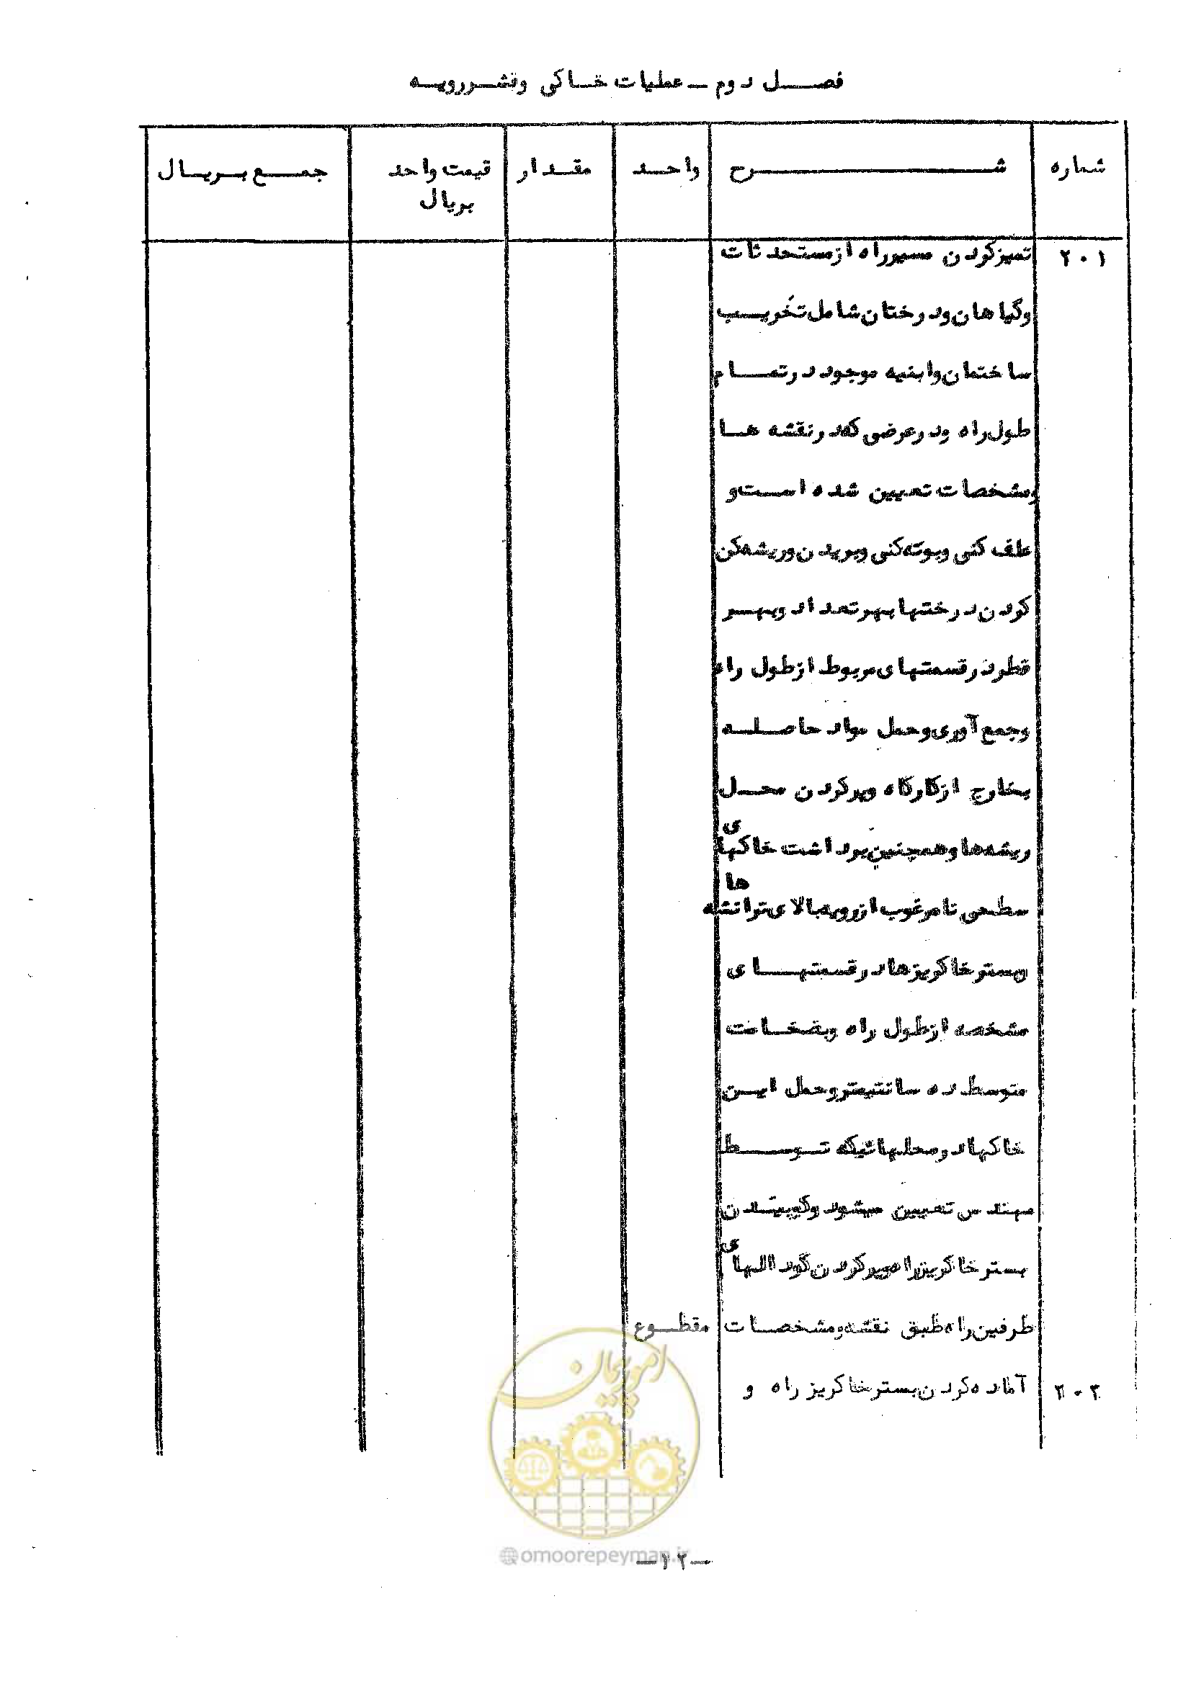 فصل دوم - عملیات خاکی وقشررویه
شماره شرح واحد مقدار قیمت واحد بریال جمع بریال
۲۰۱ تمیزکردن مسیرراه ازمستحدثات
وگیاهان ودرختان شامل تخریب
ساختمان وابنیه موجود درتمام
طول راه ودرعرضی که درنقشه ها
ومشخصات تعیین شده است و
علف کنی وبوته کنی وبریدن وریشه کن
کردن درختها بهرتعداد وبهر
قطردرقسمتهای مربوط ازطول راه
وجمع آوری وحمل مواد حاصله
بخارج ازکارگاه وپرکردن محل
ریشه ها وهمچنین برداشت خاکهای
سطحی نامرغوب ازرویه بالای ترانشه ها
وبسترخاکریزها درقسمتهای
مشخصه ازطول راه وبضخامت
متوسط ده سانتیمتروحمل این
خاکها درمحلهائیکه توسط
مهندس تعیین میشود وکوبیدن
بسترخاکریزراه وپرکردن گودالهای
طرفین راه طبق نقشه ومشخصات مقطوع
۲۰۲ آماده کردن بسترخاکریز راه و
امور پیمان
@omoorepeyman.ir
-۱۲-